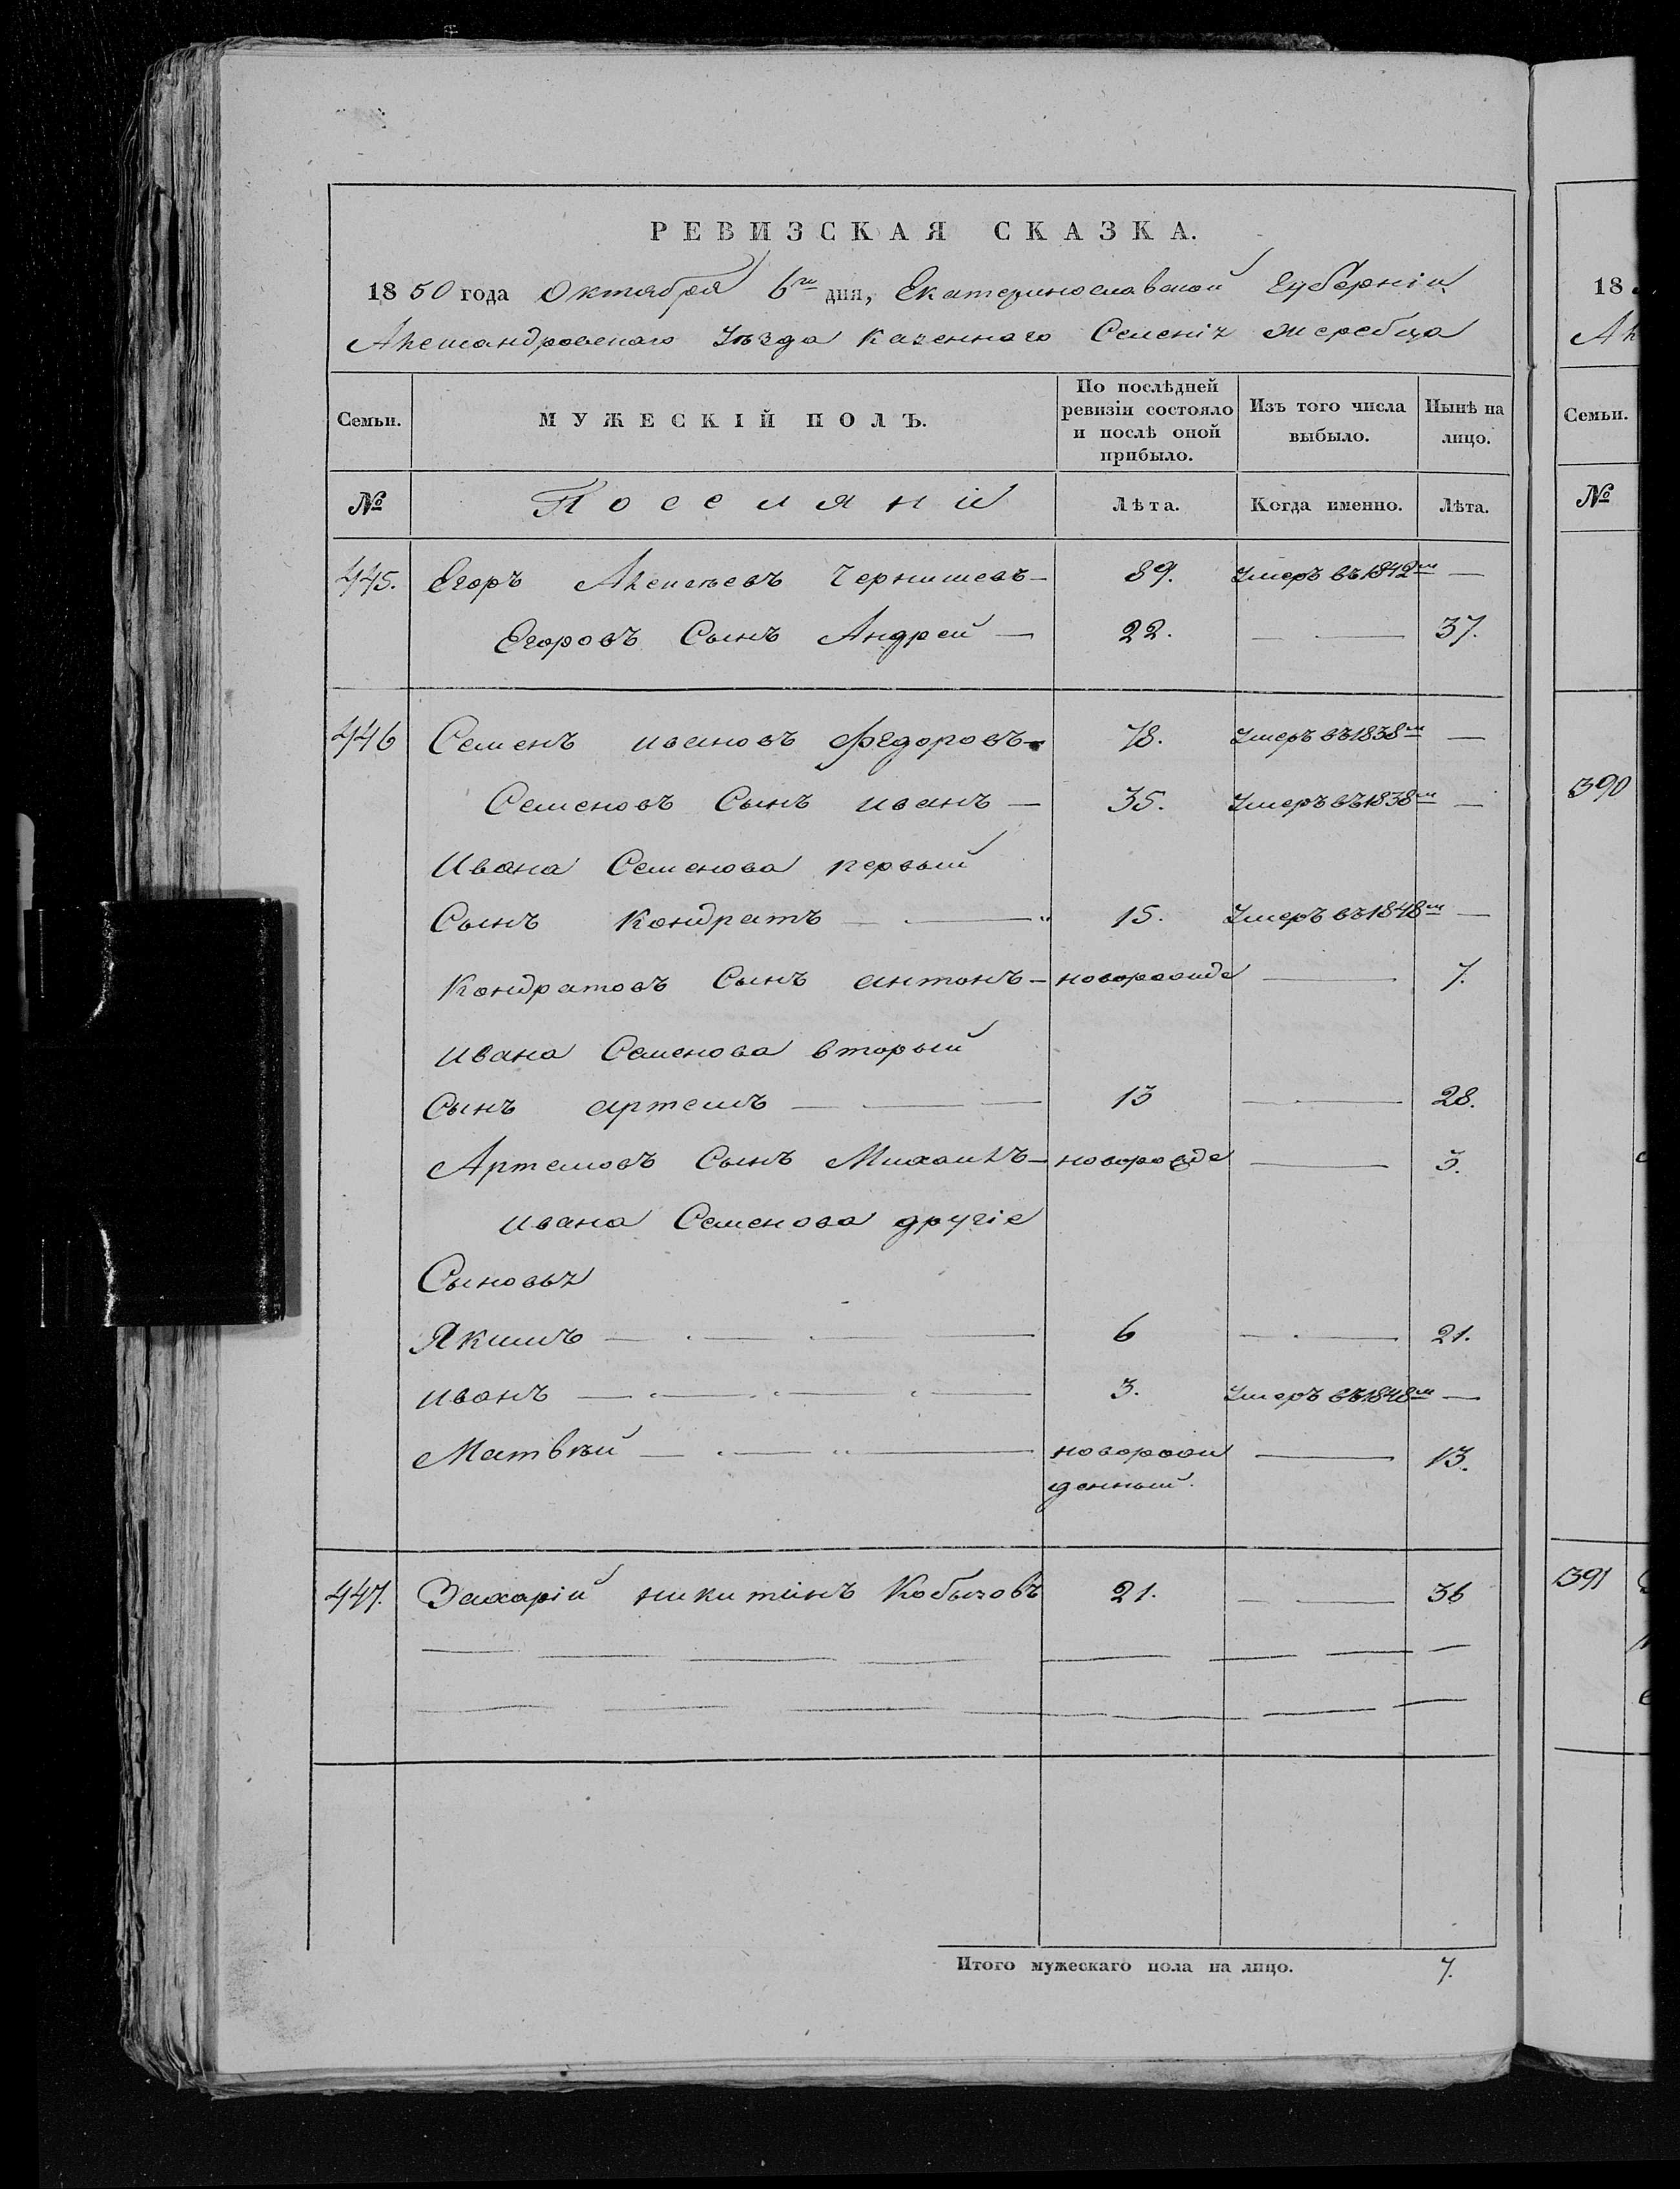 РЕВИЗСКАЯ СКАЗКА.
1850 года Октября 6го дня, Екатеринославской Губерніи
Александровскаго Уѣзда Казеннаго Селенія Жеребца
Семьи. МУЖЕСКІЙ ПОЛЪ. По послѣдней ревизіи состояло и послѣ оной прибыло. Изъ того числа выбыло. Нынѣ на лицо.
№ Поселяни Лѣта. Когда именно. Лѣта.
445. Егоръ Алексѣевъ Чернишевъ — 89. Умеръ въ 1842м —
Егоровъ Сынъ Андрей — 22. — — 37.
446 Семенъ Ивановъ Федоровъ — 78. Умеръ въ 1838м —
Семеновъ Сынъ Иванъ — 35. Умеръ въ 1838м —
Ивана Семенова первый
Сынъ Кондратъ — — 15. Умеръ въ 1848м —
Кондратовъ Сынъ Антонъ — новорожде — 7.
Ивана Семенова вторый
Сынъ Артемъ — — — 13 — — 28.
Артемовъ Сынъ Михаилъ — новорожде — 3.
Ивана Семенова другіе
Сыновья
Якимъ — — — 6 — — 21.
Иванъ — — — — 3. Умеръ въ 1848м —
Матвѣй — — — новорож — 13.
денный.
447. Захарій Никитинъ Кобызовъ 21. — — 36
Итого мужескаго пола на лицо. 7.
18
Ал
Семьи.
№
390
391